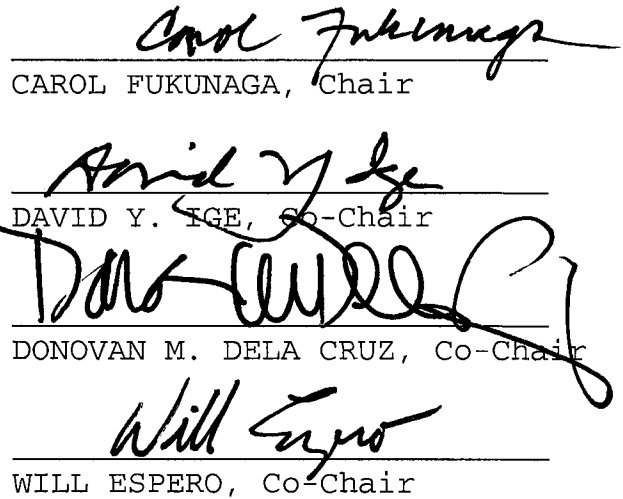 Carol Fukunaga
CAROL FUKUNAGA, Chair
David Y Ige
DAVID Y. IGE, Co-Chair
DONOVAN M. DELA CRUZ, Co-Chair
Will Espero
WILL ESPERO, Co-Chair